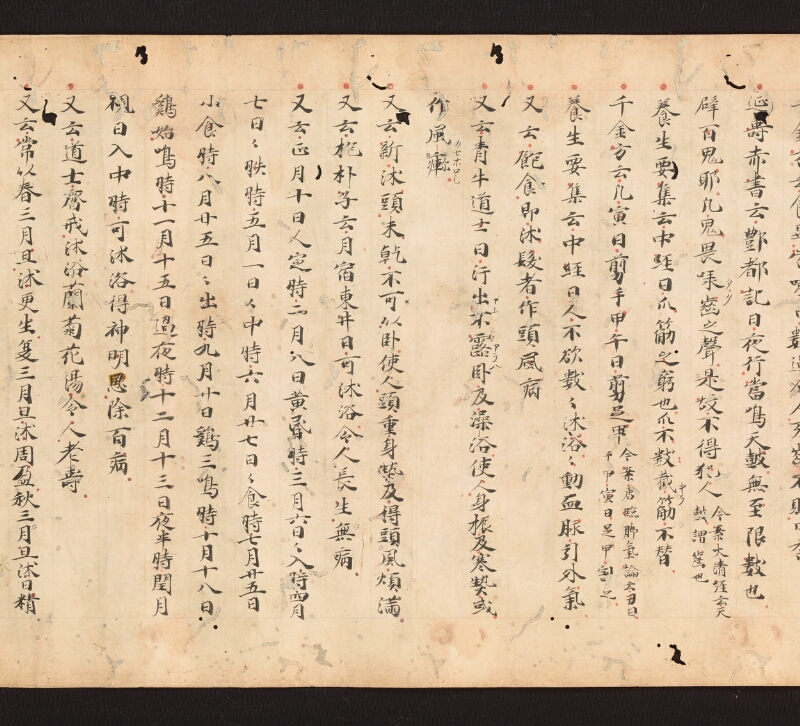 延壽赤書云酆都記曰夜行當鳴天鼓無至限數也
辟百鬼耶凡鬼畏啄齒之聲是故不得犯人 今案大清經云天鼓謂齒也
養生要集云中經曰爪筋之窮也爪不數截筋不替
千金方云凡寅日剪手甲午日剪足甲 今案唐臨脚氣論云丑日手甲寅日足甲割之
養生要集云中經曰人不欲數〻沐浴〻動血脉引外氣
又云飽食即沐髮者作頭風病
又云青牛道士曰行出不露卧及澡浴使人身振及寒熱或
作風
又云新沐頭未乾不可以卧使人頭重身熱及得頭風煩滿
又云抱朴子云月宿東井日可沐浴令人長生無病
又云正月十日人定時二月八日黄昏時三月六日〻入時四月
七日〻昳時五月一日〻中時六月廿七日〻食時七月廿五日
小食時八月廿五日〻出時九月廿日鷄三鳴時十月十八日
鷄始鳴時十一月十五日過夜時十二月十三日夜半時閏月
視日入中時可沐浴得神明恩除百病
又云道士齊戒沐浴蘭菊花湯令人老壽
又云常以春三月旦沐更生夏三月旦沐周盈秋三月旦沐日精